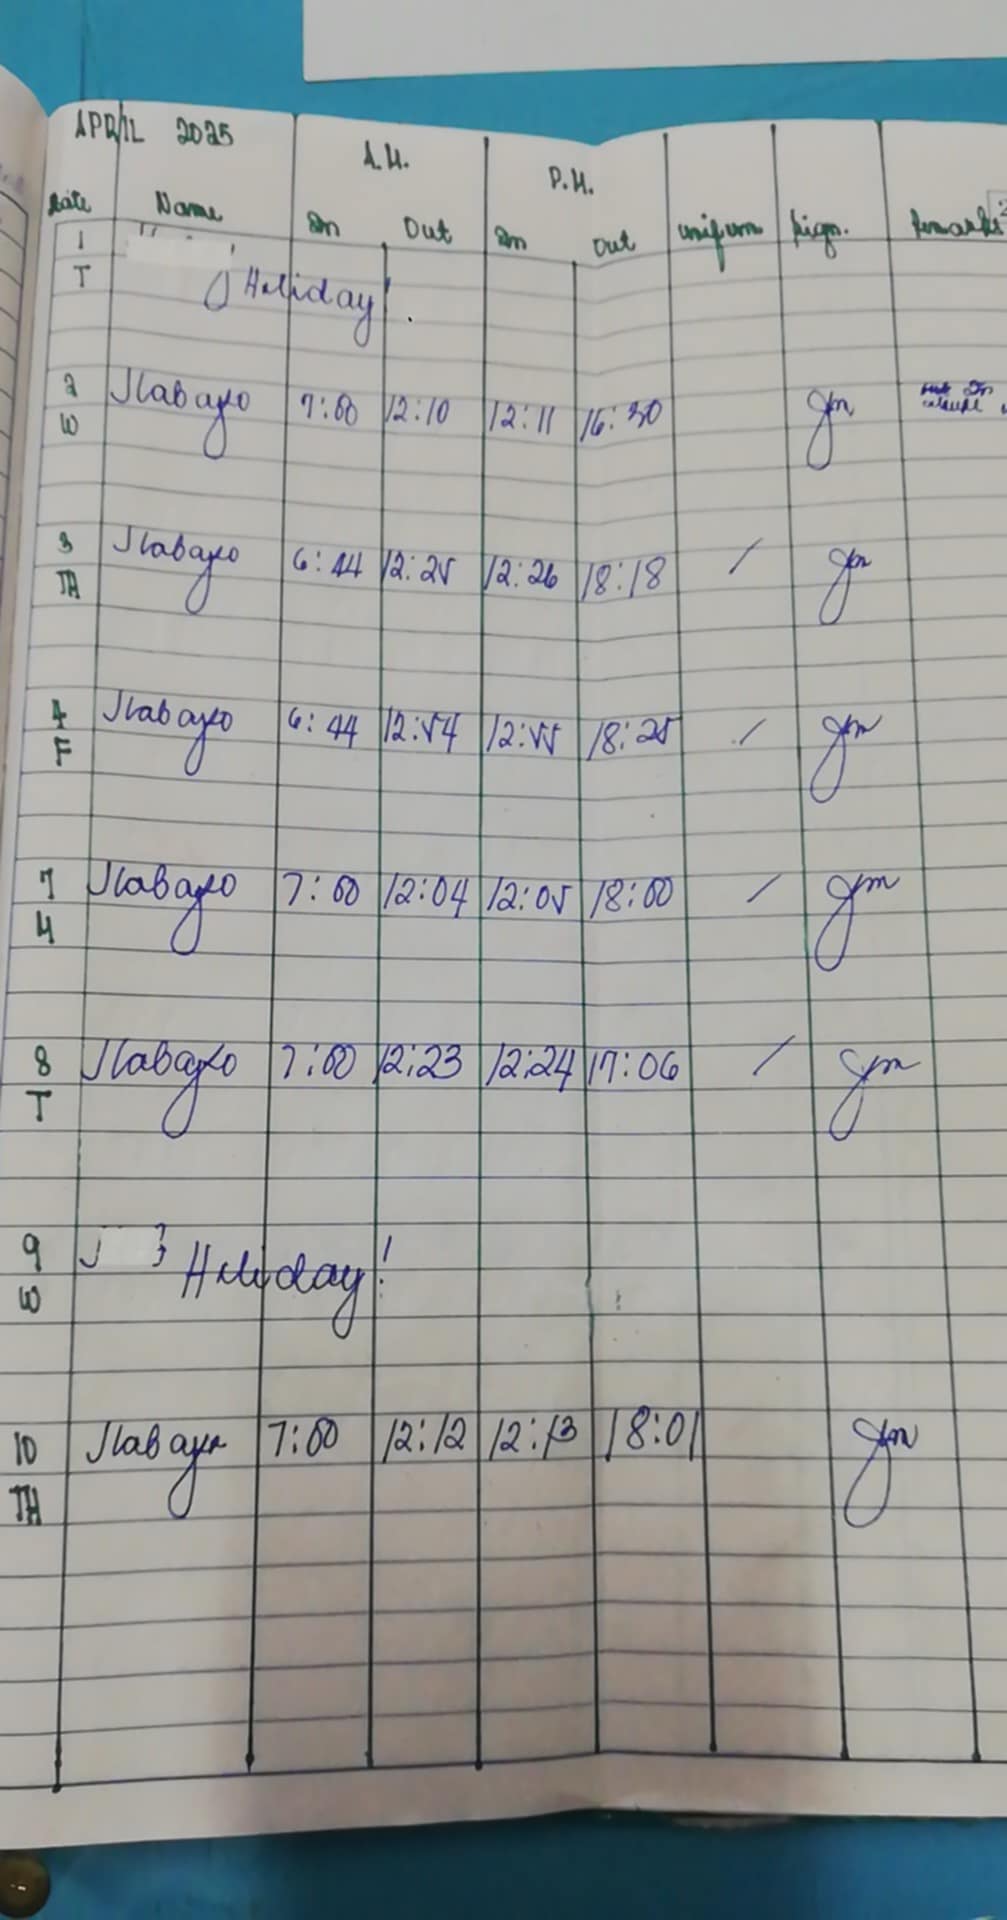 APRIL 2025
A.M. P.M.
Date Name In Out In Out uniform sign. Remarks
1
T Holiday!
2 Jlabayo 7:00 12:10 12:11 16:30 jm
W
3 Jlabayo 6:44 12:25 12:26 18:18 / jm
TH
4 Jlabayo 6:44 12:54 12:55 18:25 / jm
F
7 Jlabayo 7:00 12:04 12:05 18:00 / jm
M
8 Jlabayo 7:00 12:23 12:24 17:06 / jm
T
9 Holiday!
W
10 Jlabayo 7:00 12:12 12:13 18:01 jm
TH